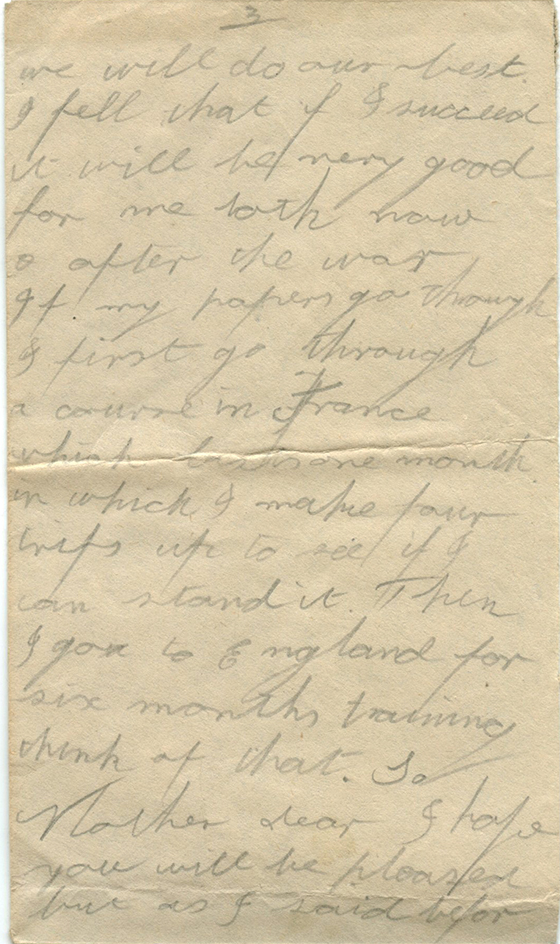 3
we will do our best.
I fell that if I succeed
it will be very good
for me both now
& after the war
If my papers go through
I first go through
a course in France
which lasts one month
in which I make four
trips up to see if I
can stand it. Then
I goe to England for
six months training
think of that. So
Mother dear I hope
you will be pleased
but as I said befor